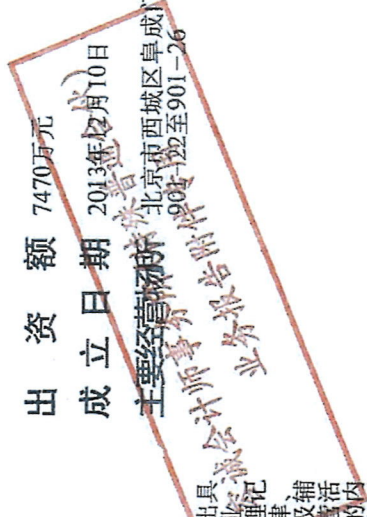 出资额 7470万元
成立日期 2013年12月10日
主要经营场所 北京市西城区阜成
901-22至901-26
诚会计师事务所(特殊普通合伙)
业务报告附件专用
出具
记
辅
活
内